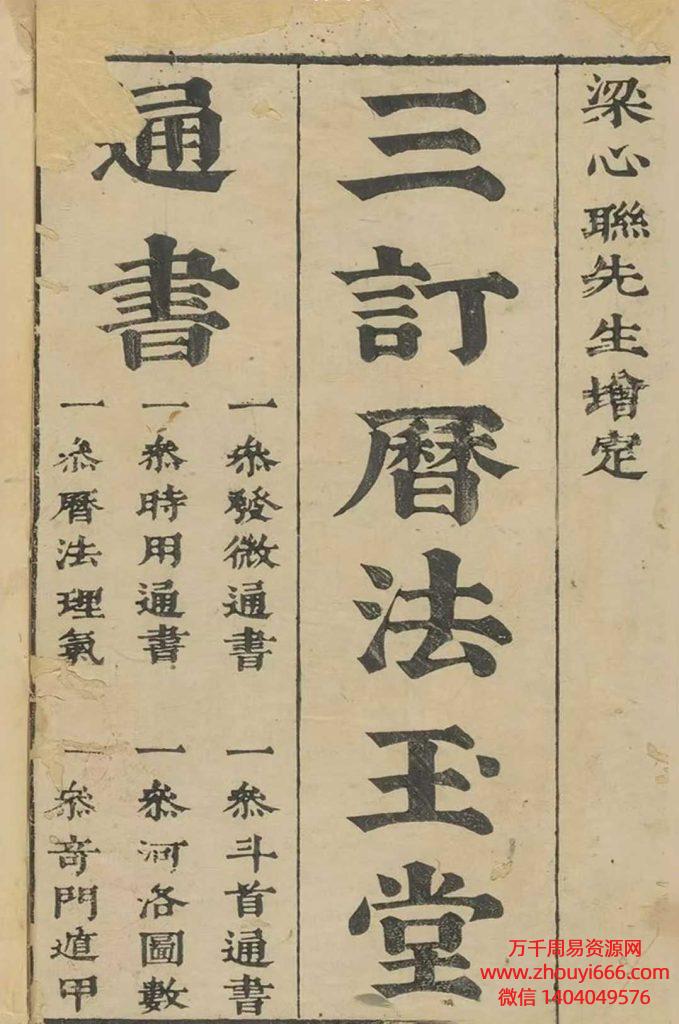 梁心聯先生增定
三訂曆法玉堂
通書
一叅發微通書
一叅斗首通書
一叅時用通書
一叅河洛圖數
一叅曆法理氣
一叅奇門遁甲
万千周易资源网
www.zhouyi666.com
微信 1404049576